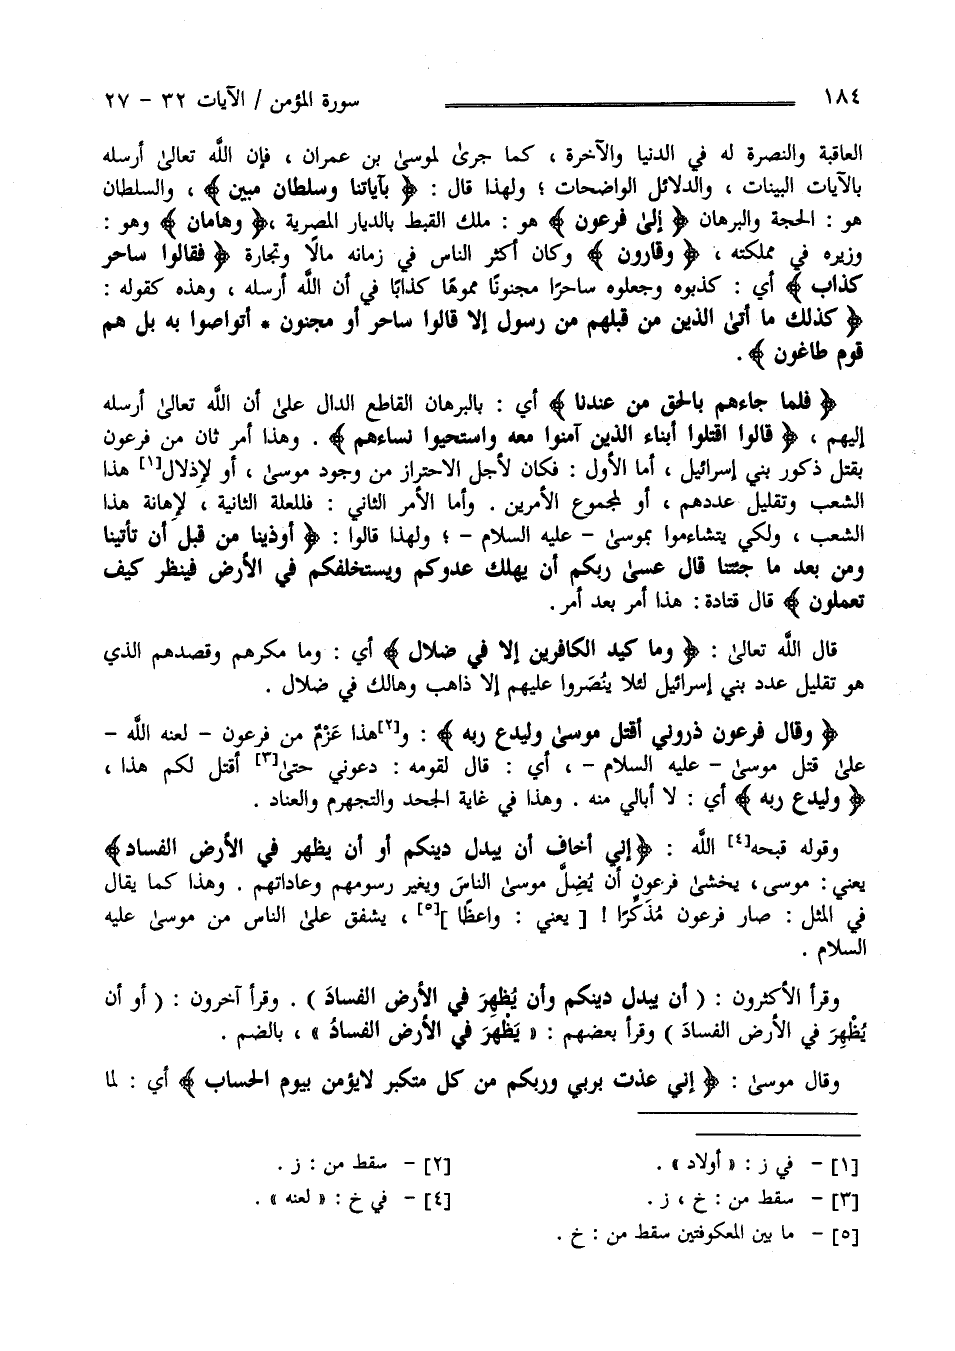 ١٨٤ سورة المؤمن / الآيات ٣٢ - ٢٧
العاقبة والنصرة له في الدنيا والآخرة ، كما جرىٰ لموسىٰ بن عمران ، فإن اللَّه تعالىٰ أرسله
بالآيات البينات ، والدلائل الواضحات ؛ ولهذا قال : ﴿ بآياتنا وسلطان مبين ﴾ ، والسلطان
هو : الحجة والبرهان ﴿ إلىٰ فرعون ﴾ هو : ملك القبط بالديار المصرية ،﴿ وهامان ﴾ وهو :
وزيره في مملكته ، ﴿ وقارون ﴾ وكان أكثر الناس في زمانه مالًا وتجارة ﴿ فقالوا ساحر
كذاب ﴾ أي : كذبوه وجعلوه ساحرًا مجنونًا مموهًا كذابًا في أن اللَّه أرسله ، وهذه كقوله :
﴿ كذلك ما أتىٰ الذين من قبلهم من رسول إلا قالوا ساحر أو مجنون * أتواصوا به بل هم
قوم طاغون ﴾ .
﴿ فلما جاءهم بالحق من عندنا ﴾ أي : بالبرهان القاطع الدال علىٰ أن اللَّه تعالىٰ أرسله
إليهم ، ﴿ قالوا اقتلوا أبناء الذين آمنوا معه واستحيوا نساءهم ﴾ . وهذا أمر ثان من فرعون
بقتل ذكور بني إسرائيل ، أما الأول : فكان لأجل الاحتراز من وجود موسىٰ ، أو لإذلال[١] هذا
الشعب وتقليل عددهم ، أو لمجموع الأمرين . وأما الأمر الثاني : فللعلة الثانية ، لإهانة هذا
الشعب ، ولكي يتشاءموا بموسىٰ - عليه السلام - ؛ ولهذا قالوا : ﴿ أوذينا من قبل أن تأتينا
ومن بعد ما جئتنا قال عسىٰ ربكم أن يهلك عدوكم ويستخلفكم في الأرض فينظر كيف
تعملون ﴾ قال قتادة : هذا أمر بعد أمر.
قال اللَّه تعالىٰ : ﴿ وما كيد الكافرين إلا في ضلال ﴾ أي : وما مكرهم وقصدهم الذي
هو تقليل عدد بني إسرائيل لئلا يُنصَروا عليهم إلا ذاهب وهالك في ضلال .
﴿ وقال فرعون ذروني أقتل موسىٰ وليدع ربه ﴾ : و[٢]هذا عَزْمٌ من فرعون - لعنه اللَّه -
علىٰ قتل موسىٰ - عليه السلام - ، أي : قال لقومه : دعوني حتىٰ[٣] أقتل لكم هذا ،
﴿ وليدع ربه ﴾ أي : لا أبالي منه . وهذا في غاية الجحد والتجهرم والعناد .
وقوله قبحه[٤] اللَّه : ﴿إني أخاف أن يبدل دينكم أو أن يظهر في الأرض الفساد﴾
يعني : موسى، يخشىٰ فرعون أن يُضِلَّ موسىٰ الناسَ ويغير رسومهم وعاداتهم . وهذا كما يقال
في المثل : صار فرعون مُذَكِّرًا ! [ يعني : واعظًا ][٥] ، يشفق علىٰ الناس من موسىٰ عليه
السلام .
وقرأ الأكثرون : ( أن يبدل دينكم وأن يُظهِرَ في الأرض الفسادَ ) . وقرأ آخرون : ( أو أن
يُظْهِرَ في الأرض الفسادَ ) وقرأ بعضهم : « يَظْهَرَ في الأرض الفسادُ » ، بالضم .
وقال موسىٰ : ﴿ إني عذت بربي وربكم من كل متكبر لايؤمن بيوم الحساب ﴾ أي : لما
[١] - في ز : « أولاد » . [٢] - سقط من : ز .
[٣] - سقط من : خ ، ز . [٤] - في خ : « لعنه » .
[٥] - ما بين المعكوفتين سقط من : خ .